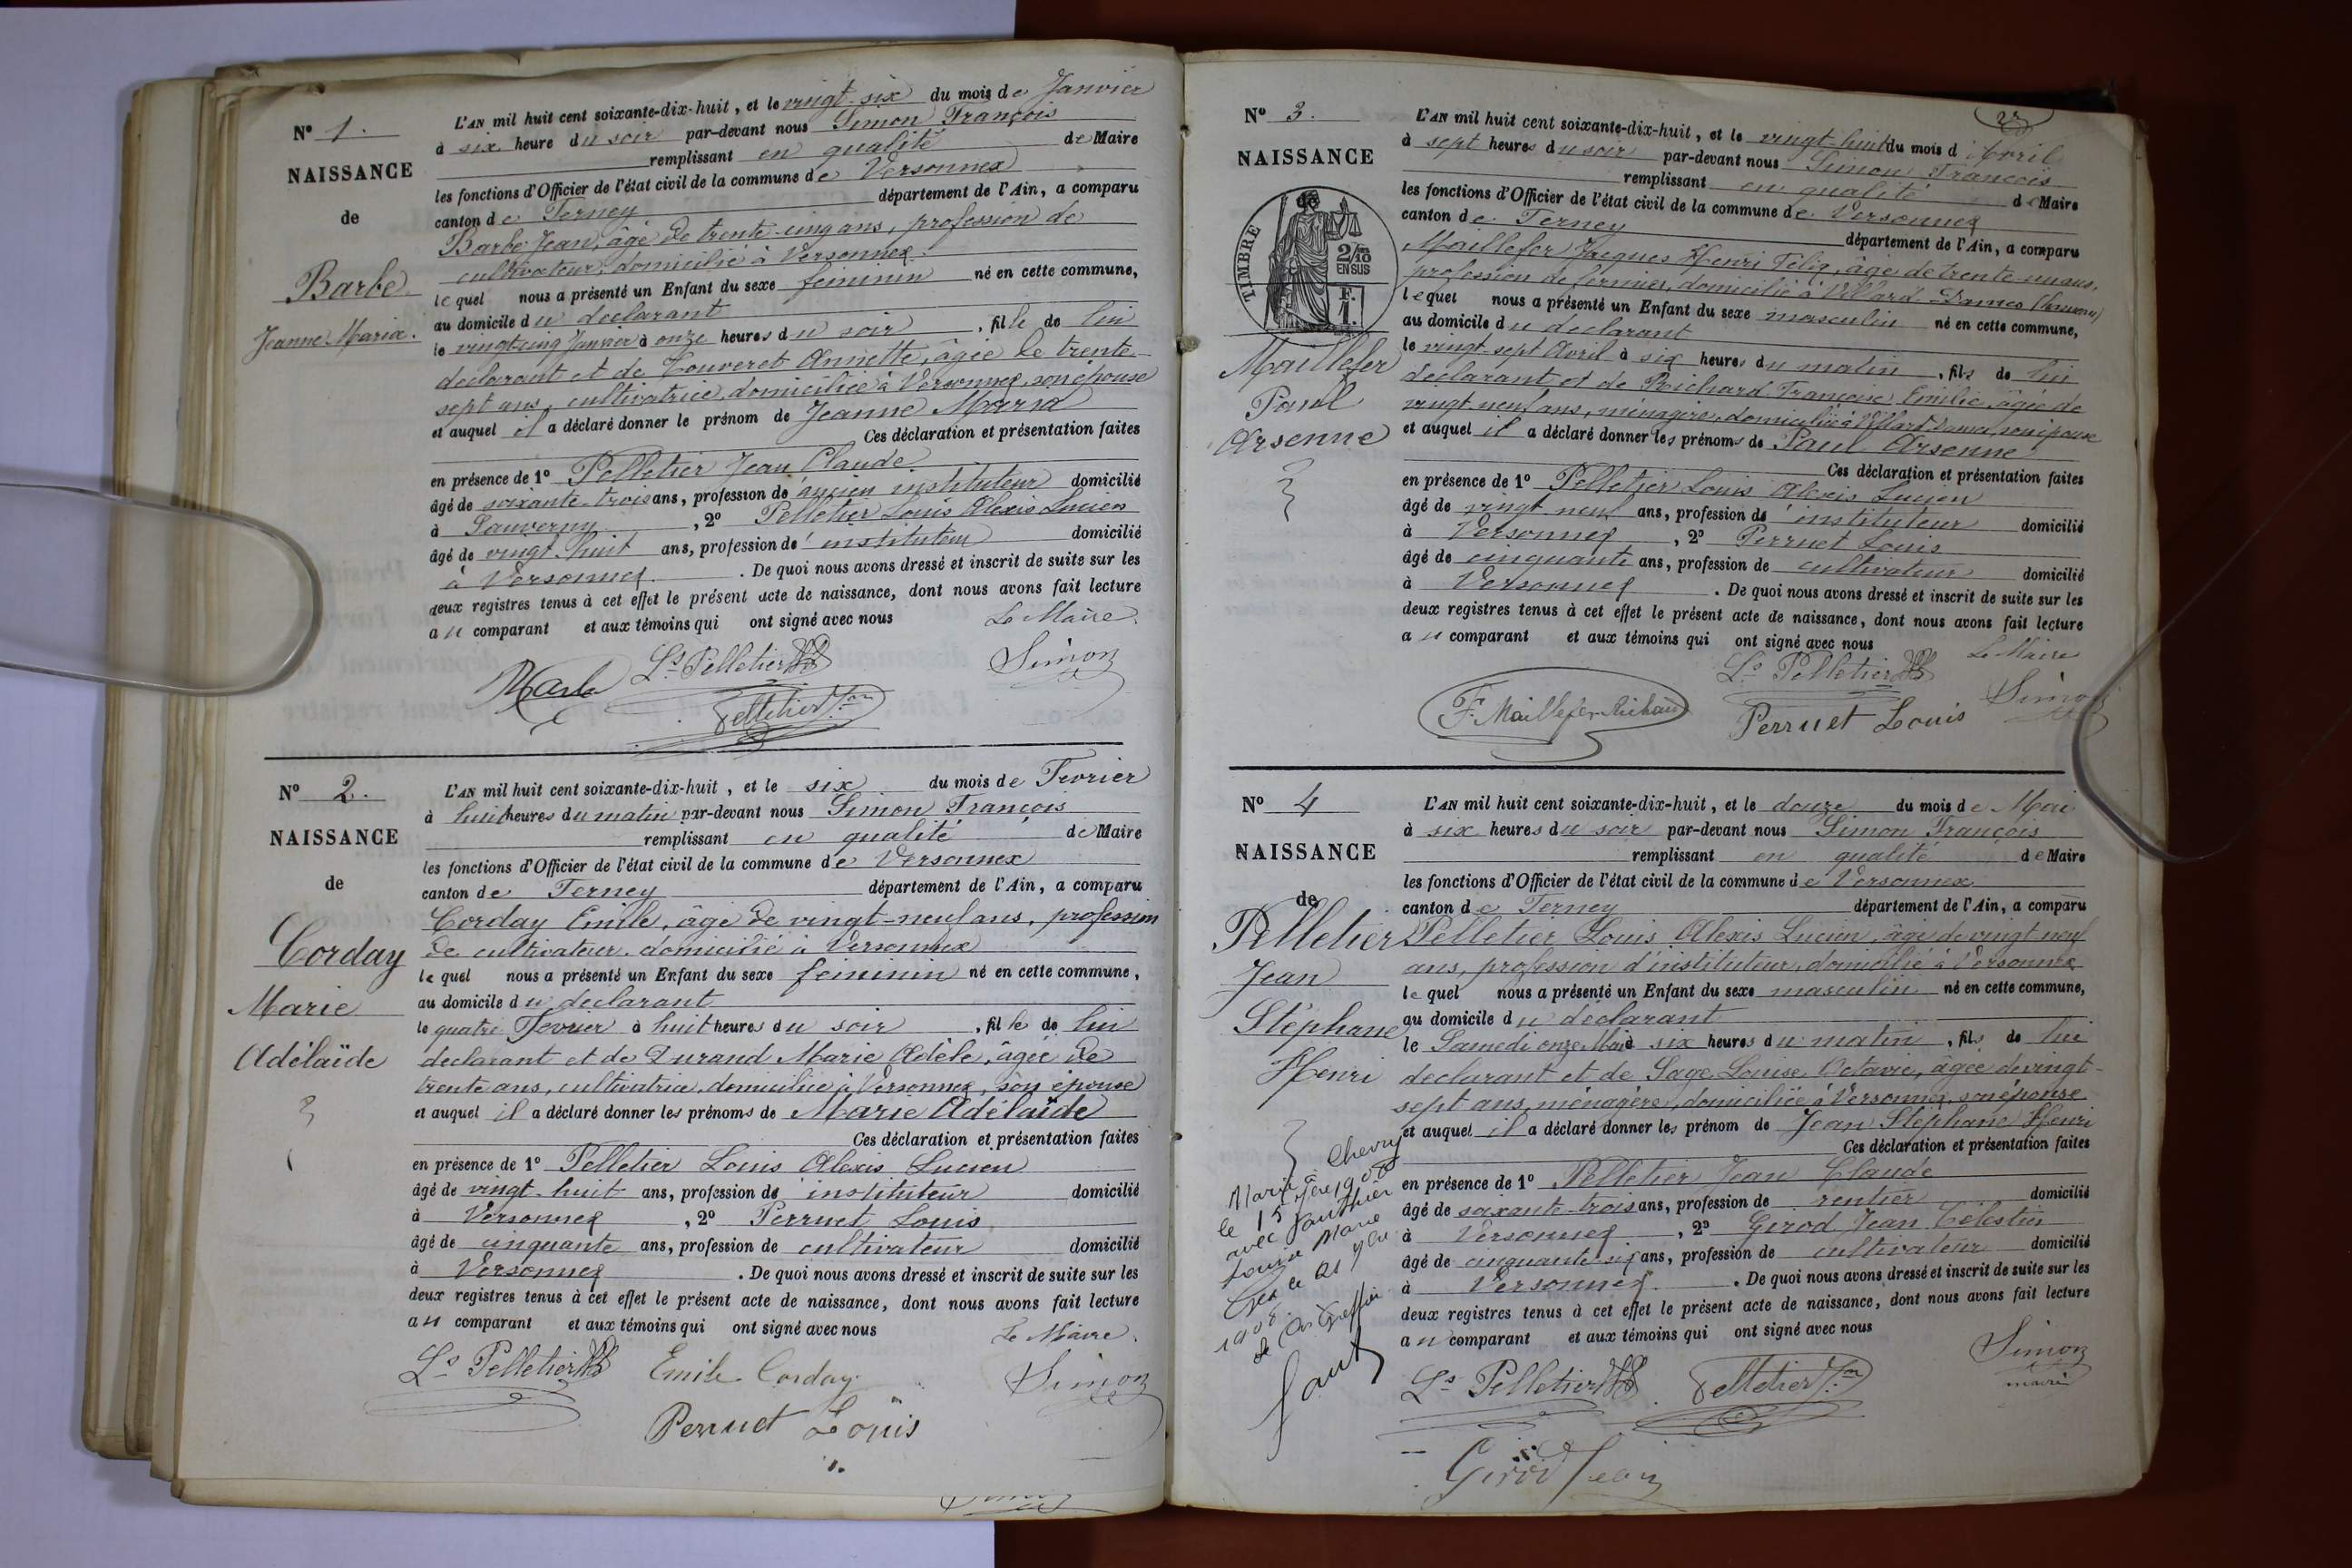 N° 1.
NAISSANCE
de
Barbe
Jeanne Maria.
L'AN mil huit cent soixante-dix-huit, et le vingt-six du mois de Janvier
à six heure du soir par-devant nous Simon François
remplissant en qualité de Maire
les fonctions d'Officier de l'état civil de la commune de Versonnex
canton de Ferney département de l'Ain, a comparu
Barbe Jean, âgé de trente-cinq ans, profession de
cultivateur, domicilié à Versonnex
lequel nous a présenté un Enfant du sexe féminin né en cette commune,
au domicile du déclarant
le vingt-cinq Janvier à onze heures du soir, fille de lui
déclarant et de Annette, âgée de trente-
sept ans, cultivatrice, domiciliée à Versonnex, son épouse
et auquel il a déclaré donner le prénom de Jeanne Maria
Ces déclaration et présentation faites
en présence de 1° Pelletier Jean Claude
âgé de soixante-trois ans, profession de ancien instituteur domicilié
à Sauverny, 2° Pelletier Louis Alexis Lucien
âgé de vingt-huit ans, profession de instituteur domicilié
à Versonnex. De quoi nous avons dressé et inscrit de suite sur les
deux registres tenus à cet effet le présent acte de naissance, dont nous avons fait lecture
au comparant et aux témoins qui ont signé avec nous Le Maire.
Barbe Ls Pelletier Simon
Pelletier
N° 2.
NAISSANCE
de
Corday
Marie
Adélaïde
L'AN mil huit cent soixante-dix-huit, et le six du mois de Fevrier
à huit heures du matin par-devant nous Simon François
remplissant en qualité de Maire
les fonctions d'Officier de l'état civil de la commune de Versonnex
canton de Ferney département de l'Ain, a comparu
Corday Emile, âgé de vingt-neuf ans, profession
de cultivateur, domicilié à Versonnex
lequel nous a présenté un Enfant du sexe féminin né en cette commune,
au domicile du déclarant
le quatre Fevrier à huit heures du soir, fille de lui
déclarant et de Durand Marie Adèle, âgée de
trente ans, cultivatrice, domiciliée à Versonnex, son épouse
et auquel il a déclaré donner les prénoms de Marie Adélaïde
Ces déclaration et présentation faites
en présence de 1° Pelletier Louis Alexis Lucien
âgé de vingt-huit ans, profession de instituteur domicilié
à Versonnex, 2° Perruet Louis
âgé de cinquante ans, profession de cultivateur domicilié
à Versonnex. De quoi nous avons dressé et inscrit de suite sur les
deux registres tenus à cet effet le présent acte de naissance, dont nous avons fait lecture
au comparant et aux témoins qui ont signé avec nous Le Maire.
Ls Pelletier Emile Corday Simon
Perruet Loüis
23
N° 3.
NAISSANCE
TIMBRE
2/10 EN SUS
F. 1.
Maillefer
Paul
Arsenne
L'AN mil huit cent soixante-dix-huit, et le vingt-huit du mois d'Avril
à sept heures du soir par-devant nous Simon François
remplissant en qualité de Maire
les fonctions d'Officier de l'état civil de la commune de Versonnex
canton de Ferney département de l'Ain, a comparu
Maillefer Jacques Henri Félix, âgé de trente-un ans,
profession de fermier, domicilié à Villard-Dames
lequel nous a présenté un Enfant du sexe masculin né en cette commune,
au domicile du déclarant
le vingt-sept Avril à six heures du matin, fils de lui
déclarant et de Richard Françoise Emilie, âgée de
vingt-neuf ans, ménagère, domiciliée à Villard-Dames, son épouse
et auquel il a déclaré donner les prénoms de Paul Arsenne
Ces déclaration et présentation faites
en présence de 1° Pelletier Louis Alexis Lucien
âgé de vingt neuf ans, profession de instituteur domicilié
à Versonnex, 2° Perruet Louis
âgé de cinquante ans, profession de cultivateur domicilié
à Versonnex. De quoi nous avons dressé et inscrit de suite sur les
deux registres tenus à cet effet le présent acte de naissance, dont nous avons fait lecture
au comparant et aux témoins qui ont signé avec nous Le Maire
Ls Pelletier Simon
F. Maillefer-Richard Perruet Louis
N° 4
NAISSANCE
de
Pelletier
Jean
Stéphane
Henri
Marié à Chevry
le 15
avec
Louise Marie
L'AN mil huit cent soixante-dix-huit, et le douze du mois de Mai
à six heures du soir par-devant nous Simon François
remplissant en qualité de Maire
les fonctions d'Officier de l'état civil de la commune de Versonnex
canton de Ferney département de l'Ain, a comparu
Pelletier Louis Alexis Lucien âgé de vingt neuf
ans, profession d'instituteur, domicilié à Versonnex
lequel nous a présenté un Enfant du sexe masculin né en cette commune,
au domicile du déclarant
le Samedi onze Mai à six heures du matin, fils de lui
déclarant et de Sage Louise Octavie, âgée de vingt-
sept ans, ménagère, domiciliée à Versonnex, son épouse
et auquel il a déclaré donner les prénom de Jean Stéphane Henri
Ces déclaration et présentation faites
en présence de 1° Pelletier Jean Claude
âgé de soixante-trois ans, profession de rentier domicilié
à Versonnex, 2° Girod Jean Célestin
âgé de cinquante-six ans, profession de cultivateur domicilié
à Versonnex. De quoi nous avons dressé et inscrit de suite sur les
deux registres tenus à cet effet le présent acte de naissance, dont nous avons fait lecture
au comparant et aux témoins qui ont signé avec nous
Ls Pelletier Pelletier Simon
maire
Girod Jean